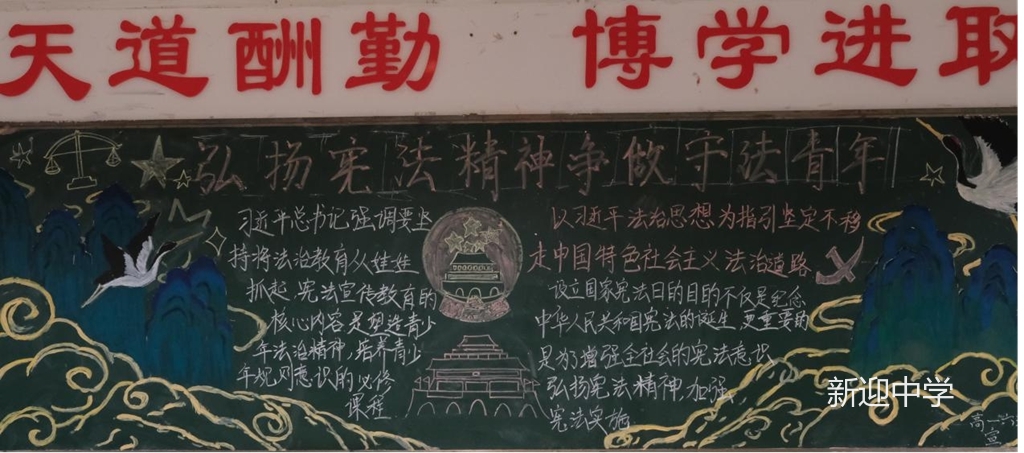 天道酬勤 博学进取
弘扬宪法精神争做守法青年
习近平总书记强调要坚
持将法治教育从娃娃
抓起，宪法宣传教育的
核心内容是塑造青少
年法治精神，培养青少
年规则意识的必修
课程
以习近平法治思想为指引坚定不移
走中国特色社会主义法治道路
设立国家宪法日的目的不仅是纪念
中华人民共和国宪法的诞生，更重要的
是为增强全社会的宪法意识
弘扬宪法精神，加强
宪法实施
新迎中学
高一六
宣